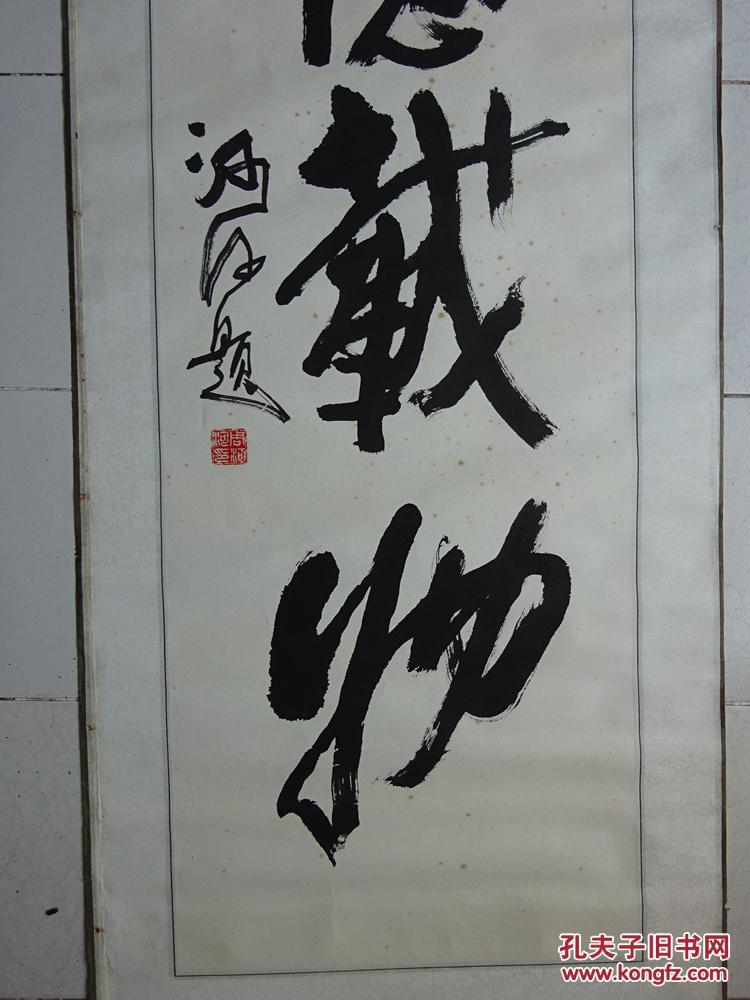 德載物
题
孔夫子旧书网
www.kongfz.com